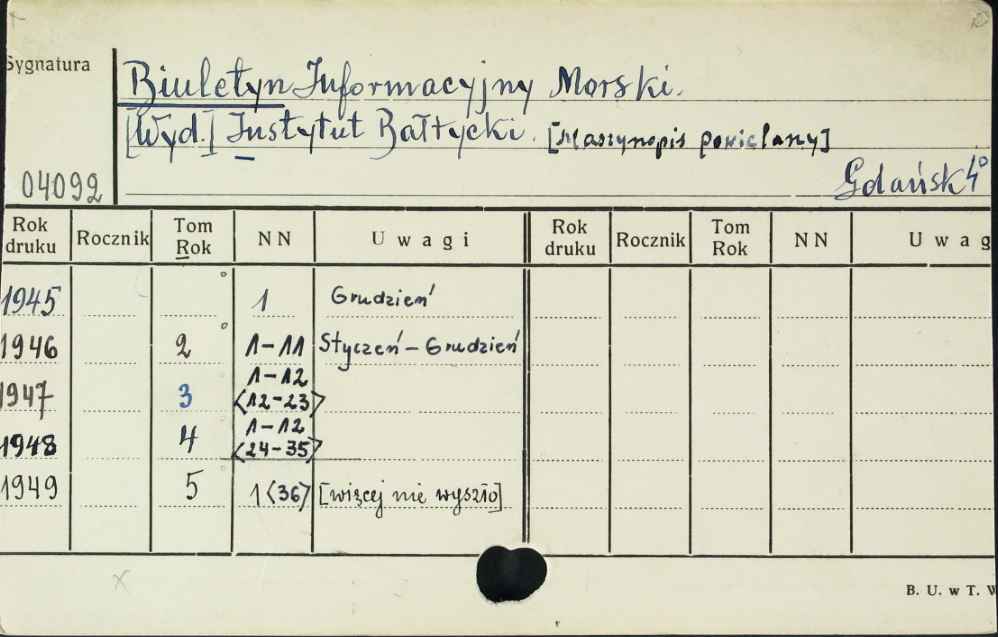 Sygnatura
Biuletyn Informacyjny Morski.
[Wyd.] Instytut Bałtycki. [Maszynopis powielany]
04092 Gdańsk 4°
Rok druku Rocznik Tom Rok NN Uwagi Rok druku Rocznik Tom Rok NN Uwag
1945 1 Grudzień
1946 2 1-11 Styczeń - Grudzień
1947 3 1-12 <12-23>
1948 4 1-12 <24-35>
1949 5 1<36> [więcej nie wyszło]
x
B. U. w T. W